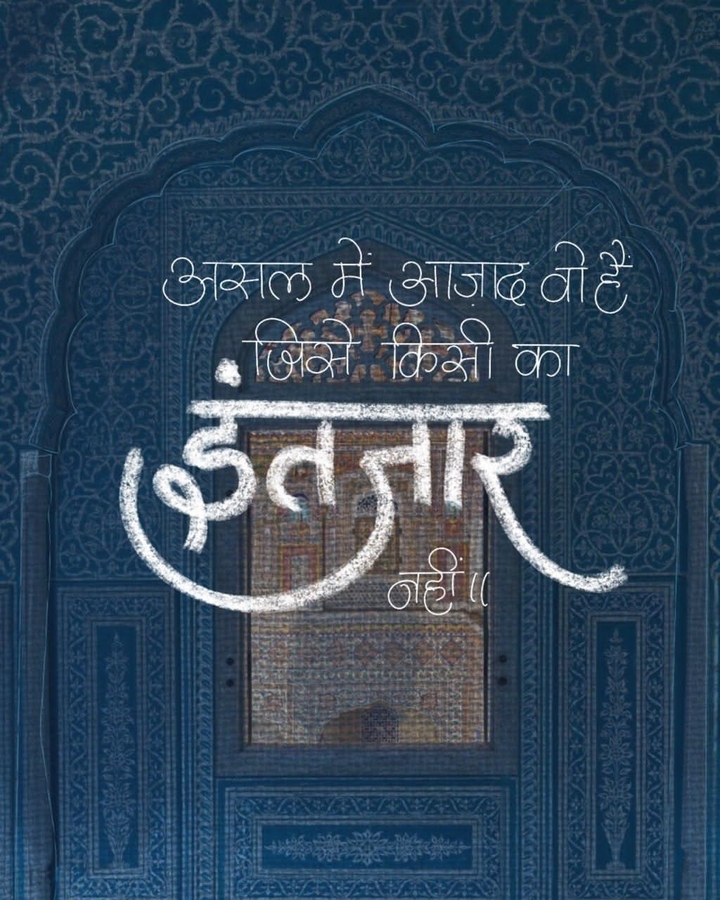 असल में आज़ाद वो हैं
जिसे किसी का
इंतजार
नहीं ॥